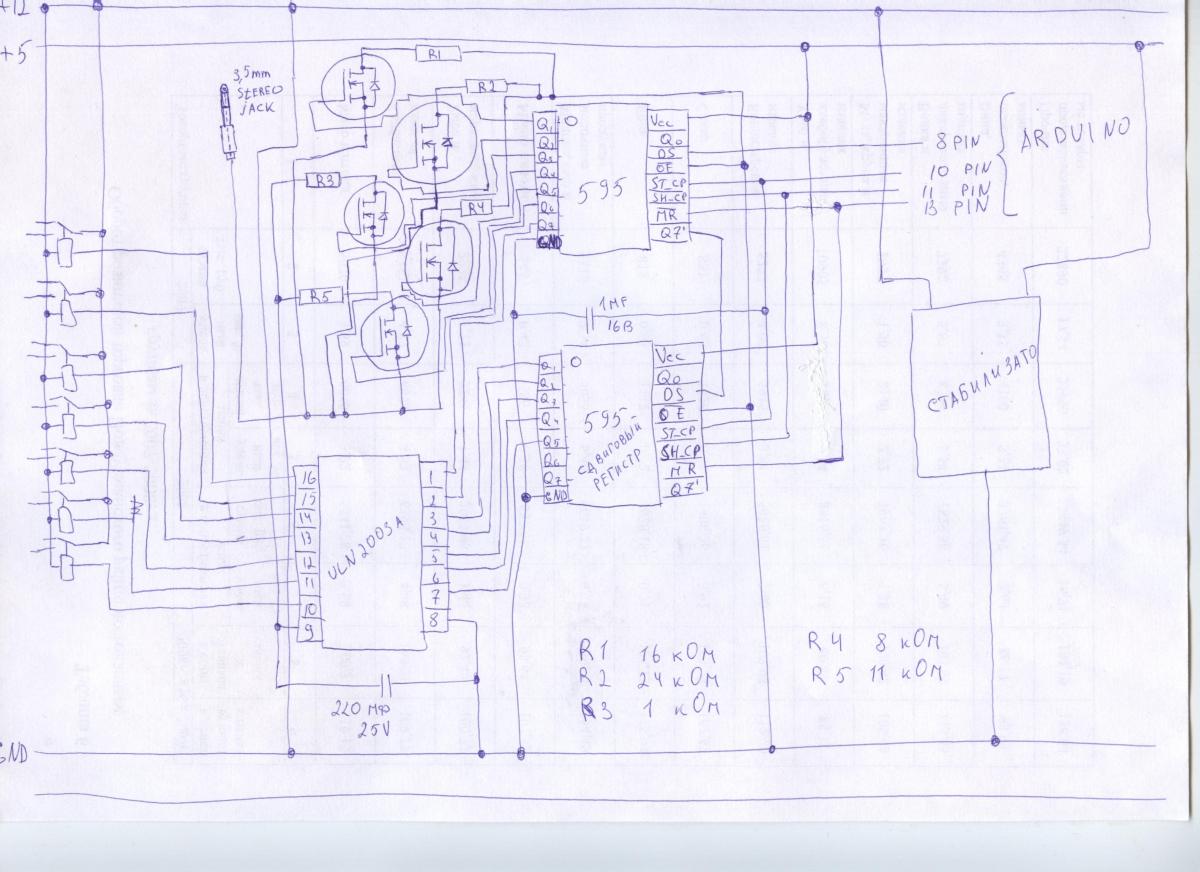 +12
+5
3,5mm
STEREO
JACK
R1
R2
R3
R4
R5
Q1
Q2
Q3
Q4
Q5
Q6
Q7
GND
595
Vcc
Q0
DS
OE
ST_CP
SH_CP
MR
Q7'
8 PIN
10 PIN
11 PIN
13 PIN
ARDUINO
1MF
16В
Q1
Q2
Q3
Q4
Q5
Q6
Q7
GND
595
СДВИГОВЫЙ
РЕГИСТР
Vcc
Q0
DS
OE
ST_CP
SH_CP
MR
Q7'
СТАБИЛИЗАТО
16
15
14
13
12
11
10
9
ULN2003A
1
2
3
4
5
6
7
8
220 МФ
25V
R1 16 кОм
R2 24 кОм
R3 1 кОм
R4 8 кОм
R5 11 кОм
GND